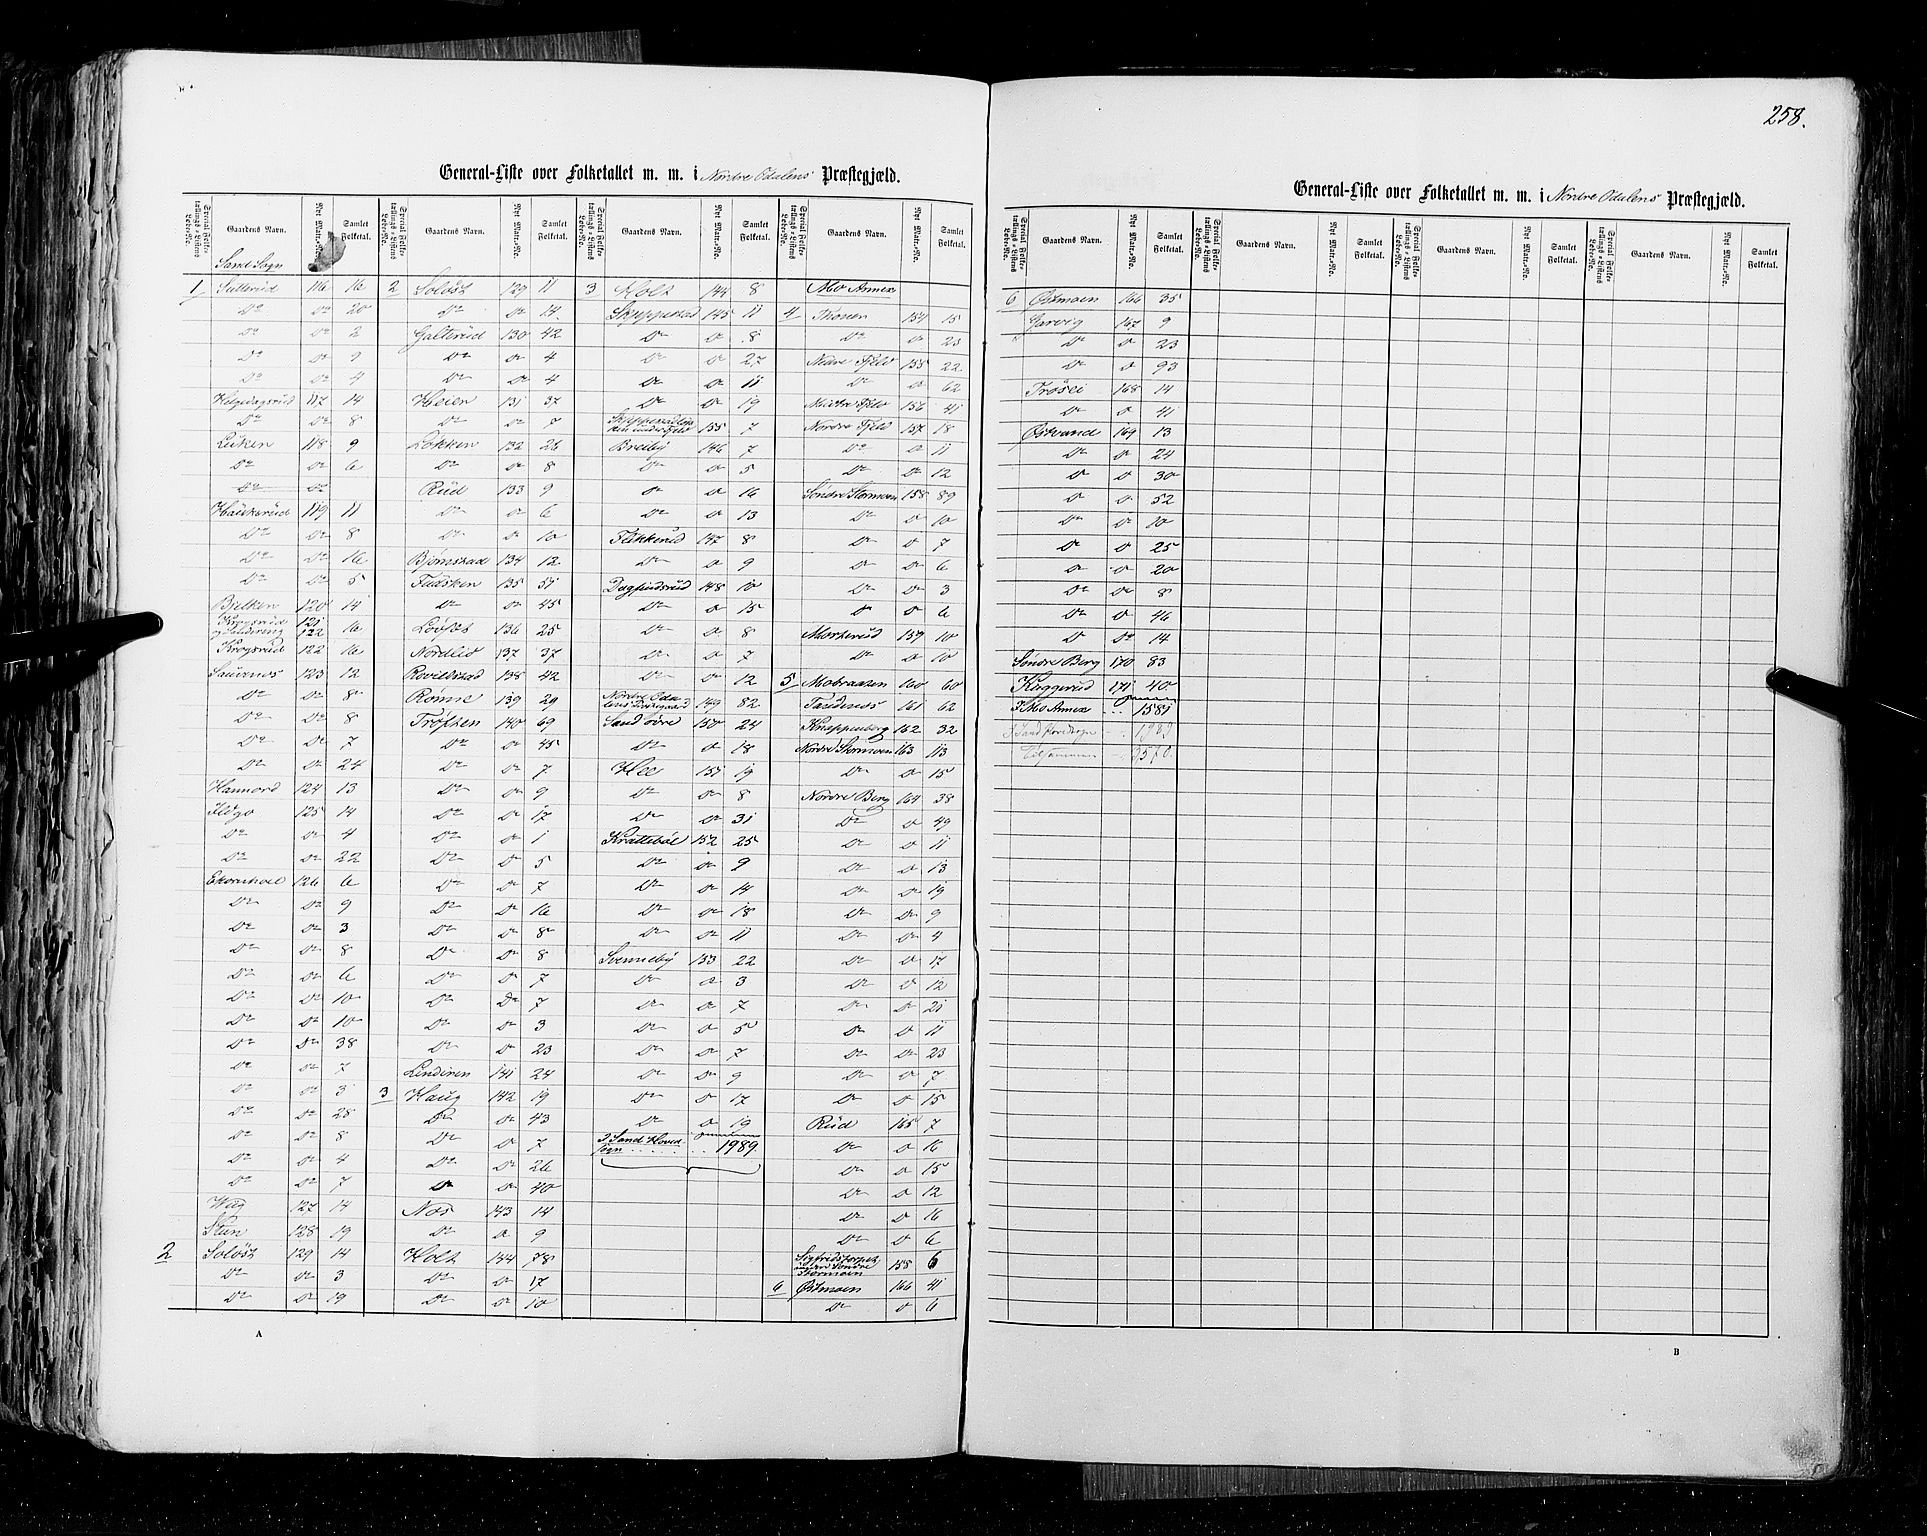 258.
General-Liste over Folketallet m. m. i Nordre Odalens Præstegjæld.
Special Folketællings-Listens Løbe-No. Gaardens Navn. Nyt Matr.-No. Samlet Folketal. Special Folketællings-Listens Løbe-No. Gaardens Navn. Nyt Matr.-No. Samlet Folketal. Special Folketællings-Listens Løbe-No. Gaardens Navn. Nyt Matr.-No. Samlet Folketal. Special Folketællings-Listens Løbe-No. Gaardens Navn. Nyt Matr.-No. Samlet Folketal.
Sand Sogn
1 116 16
Do Do 20
Do Do 2
Do Do 9
Do Do 4
117 14
Do Do 8
118 9
Do Do 6
Do Do
119 11
Do Do 8
Do Do 16
Do Do 5
120 14
121
122 16
Krogsrud 122 16
123 12
Do Do 8
Do Do 8
Do Do 7
Do Do 24
124 13
125 14
Do Do 4
Do Do 22
126 6
Do Do 9
Do Do 3
Do Do 8
Do Do 6
Do Do 10
Do Do 10
Do Do 38
Do Do 7
Do Do 3
Do Do 28
Do Do 8
Do Do 4
Do Do 7
127 14
128 19
2 Soløst 129 14
Do Do 3
Do Do 19
2 Soløst 129 11
Do Do 14
Galterud 130 42
Do Do 4
Do Do 4
Heien 131 37
Do Do 7
Løkken 132 26
Do Do 8
Rud 133 9
Do Do 6
Do Do 10
Bjørnstad 134 12
135 51
Do Do 45
136 25
Nordlid 137 37
138 42
Rønne 139 29
Trøftsen 140 69
Do Do 45
Do Do 7
Do Do 9
Do Do 17
Do Do 1
Do Do 5
Do Do 7
Do Do 16
Do Do 8
Do Do 8
Do Do 7
Do Do 7
Do Do 3
Do Do 23
141 24
3 Haug 142 19
Do Do 43
Do Do 7
Do Do 26
Do Do 40
Næs 143 14
Do Do 9
Holt 144 78
Do Do 17
Do Do 10
3 Holt 144 8
Skyppestad 145 11
Do Do 8
Do Do 27
Do Do 11
Do Do 19
155 7
Bredby 146 7
Do Do 5
Do Do 16
Do Do 13
Flikkerud 147 8
Do Do 9
Dagfindsrud 148 10
Do Do 15
Do Do 8
Do Do 7
Do Do 12
Nordre Oda-
lens 149 82
Sand øvre 150 24
Do Do 18
Hee 151 19
Do Do 8
Do Do 31
Krættebøl 152 25
Do Do 9
Do Do 14
Do Do 18
Do Do 11
Svenneby 153 22
Do Do 3
Do Do 7
Do Do 5
Do Do 7
Do Do 9
Do Do 17
Do Do 19
I Sand Hoved-
sogn 1989.
Mo Annex
4 Thonen 154 15
Do Do 23
Nedre Fjeld 155 22
Do Do 62
Midtre Fjeld 156 41
Nordre Fjeld 157 18
Do Do 11
Do Do 12
Søndre Stormoen 158 89
Do Do 10
Do Do 7
Do Do 6
Do Do 3
Do Do 6
Morterud 159 10
Do Do 10
5 Mobraaten 160 60
Sandnes 161 62
Knappenberg 162 32
Nordre Stormoen 163 113
Do Do 15
Nordre Berg 164 38
Do Do 49
Do Do 11
Do Do 13
Do Do 19
Do Do 9
Do Do 4
Do Do 17
Do Do 12
Do Do 21
Do Do 11
Do Do 23
Do Do 7
Do Do 15
Rud 165 7
Do Do 16
Do Do 15
Do Do 12
Do Do 16
Do Do 6
Sigfridstorpet
under Søndre
Stormoen 158 6
6 Østmoen 166 41
Do Do 6
A
General-Liste over Folketallet m. m. i Nordre Odalens Præstegjæld.
Special Folketællings-Listens Løbe-No. Gaardens Navn. Nyt Matr.-No. Samlet Folketal. Special Folketællings-Listens Løbe-No. Gaardens Navn. Nyt Matr.-No. Samlet Folketal. Special Folketællings-Listens Løbe-No. Gaardens Navn. Nyt Matr.-No. Samlet Folketal. Special Folketællings-Listens Løbe-No. Gaardens Navn. Nyt Matr.-No. Samlet Folketal.
6 Østmoen 166 35
Garvig 167 9
Do Do 23
Do Do 93
Trøsei 168 14
Do Do 41
Østvand 169 13
Do Do 24
Do Do 30
Do Do 52
Do Do 10
Do Do 25
Do Do 20
Do Do 8
Do Do 46
Do Do 14
Søndre Berg 170 83
Kaggerud 171 40
I Mo Annex 1581
I Sand Hovedsogn 1989
Tilsammen 3570
B